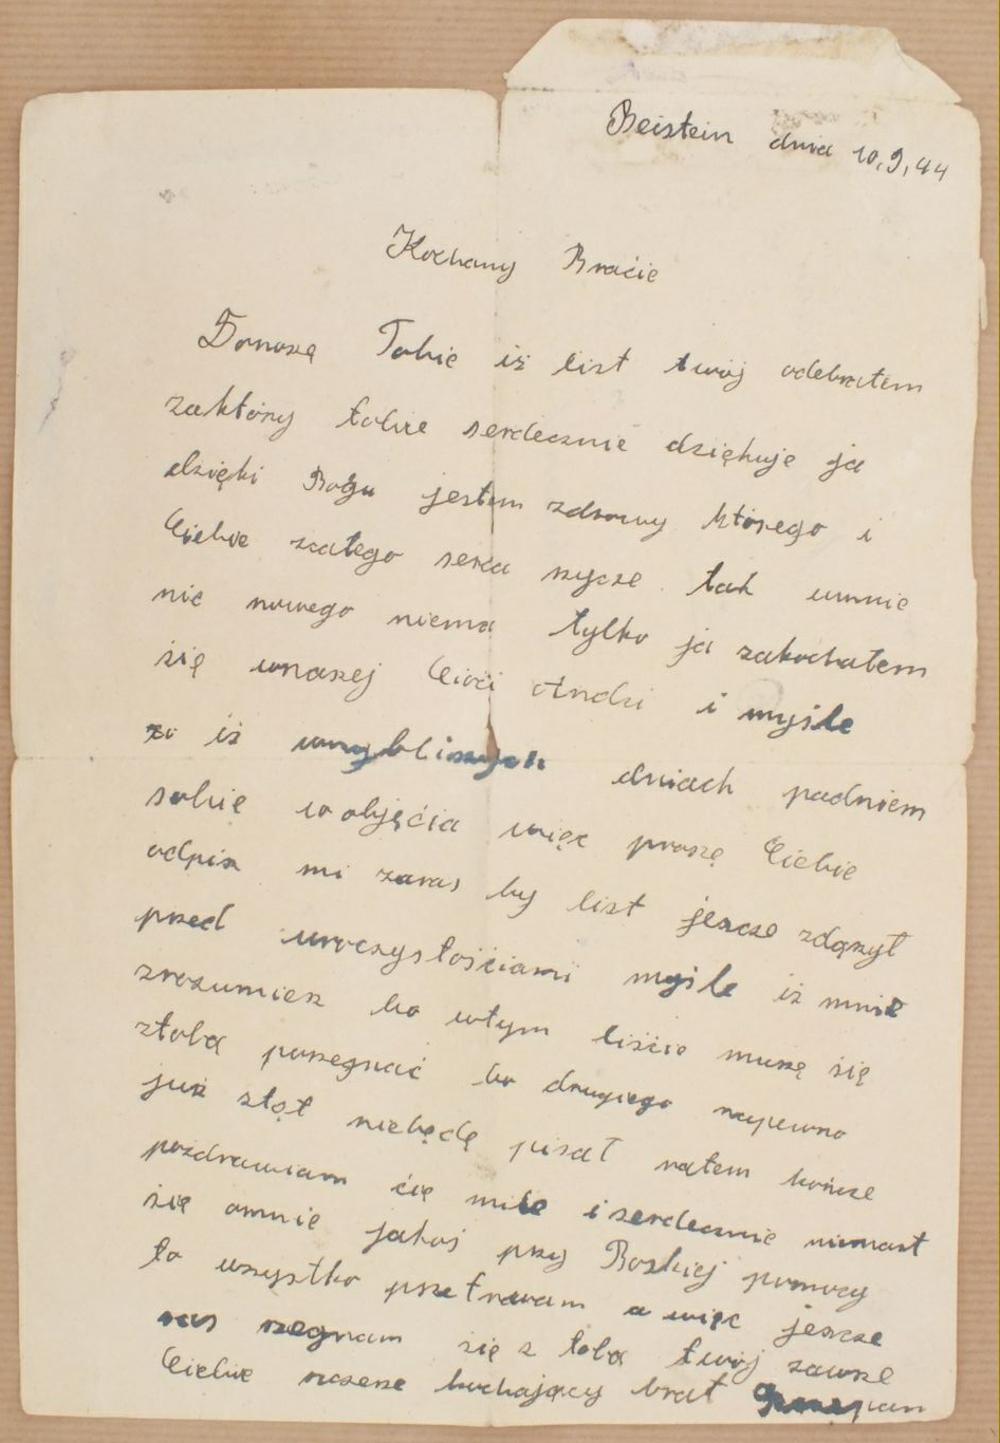 Beistein dnia 10,9,44
Kochany Bracie
Donoszę Tobie iż list twój odebrałem
zaktóry tobie serdecznie dziękuje ja
dzięki Bogu jestem zdrowy którego i
Ciebie zcałego serca życze tak umnie
nic nowego niema tylko ja zakochałem
się wnaszej Cioci Andzi i myśle
że iż wnajbliższych dniach padniem
sobie w objęćia więc proszę Ciebie
odpisz mi zaras by list jeszcze zdążył
przed uroczystośćiami myśle iż mnie
zrozumiesz bo wtym liśćie muszę się
ztobą pożegnać bo drugiego napewno
już ztąt niebędę pisał zatem kończe
pozdrawiam ćię mile i serdecznie niemart
się omnie jakoś przy Boskiej pomocy
to wszystko przetrwam a więc jeszcze
ras żegnam się z tobą twój zawsze
Ciebie szczerze kochający brat